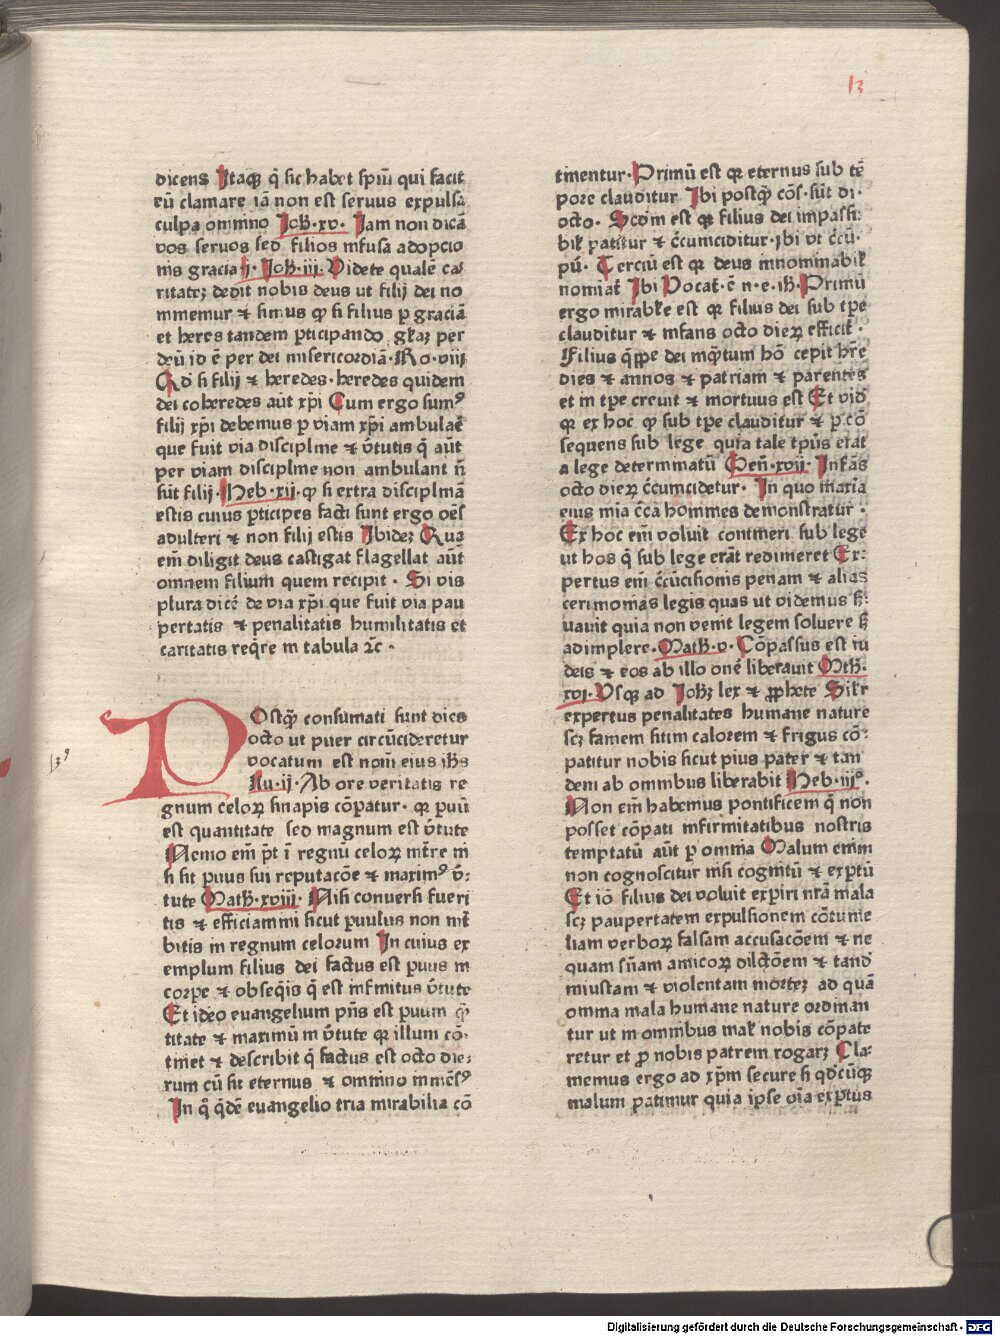 13
dicens Itaqꝫ q̇ sic habet spūm qui facit
eū clamare iā non est seruus expulsa
culpa omnino Joħ·xv· Jam non dicā
vos seruos sed filios infusa adopcio
nis gracia·j· Joħ·iii· Videte qualē ca⸗
ritatez dedit nobis deus ut filij dei no
minemur ⁊ simus ꝙ si filius p̱ graciā
et heres tandem pticipando gl̄iaꝫ per
deū id ē per dei misericordiā·Ro·viij
Qd̓ si filij ⁊ heredes·heredes quidem
dei coheredes aūt xp̄i Cum ergo sum⁹
filij xp̄i debemus p̱ viam xp̄i ambulaē
que fuit via discipline ⁊ v̓tutis q̄ aūt
per viam discipline non ambulant n̄
sūt filij·Heb·xij·ꝙ si extra disciplinā
estis cuius pticipes facti sunt ergo oēs
adulteri ⁊ non filij estis Ibidez Que
em̄ diligit deus castigat flagellat aūt
omnem filium quem recipit· Si vis
plura dicē de via xp̄i que fuit via pau
pertatis ⁊ penalitatis humilitatis et
caritatis req̇re in tabula ⁊c·
POstqꝫ consumati sunt dies
octo ut puer circūcideretur
vocatum est nom̄ eius ih̄s
Lu·ij·Ab ore veritatis re
13⁹
gnum celoꝝ sinapis cōpatur· qꝛ puū
est quantitate sed magnum est v̓tute
Nemo em̄ pt̄ ī regnū celoꝝ intre ni
si sit puus sui reputacōe ⁊ maxim⁹ v̓⸗
tute Math·xviii· Nisi conuersi fueri
tis ⁊ efficiammi sicut puulus non int̄
bitis in regnum celorum In cuius ex
emplum filius dei factus est puus in
corpe ⁊ obseq̇is q̇ est infinitus v̓tute
Et ideo euangelium pn̄s est puum q̄
titate ⁊ maximū in v̓tute qꝛ illum cō⸗
tinet ⁊ describit q̇ factus est octo die⸗
rum cū sit eternus ⁊ omnino inmēs⁹
In q̇ q̇dē euangelio tria mirabilia cō
tinentur·Primū est qꝛ eternus sub tē
pore clauditur Ibi postqꝫ cōs·sūt di·
octo· Scdm est qꝛ filius dei impassi⸗
bil̓ patitur ⁊ c̓cumciditur·ibi vt c̓cū·
pū· Terciū est qꝛ deus innominabil̓
nominat̄ Ibi Vocat̄·ē n·e·ih̄·Primū
ergo mirabile est qꝛ filius dei sub tp̄e
clauditur ⁊ infans octo dieꝝ efficit̄·
Filius q̇ppe dei inq̄tum hō cepit hr̄e
dies ⁊ annos ⁊ patriam ⁊ parentes
et in tp̄e creuit ⁊ mortuus est Et vid̄
qꝛ ex hoc ꝙ sub tp̄e clauditur ⁊ p̱ cō
sequens sub lege quia tale tp̄us erat
a lege determinatū Gen̄·xvij· Infās
octo dieꝝ c̓cumcidetur· In quo maxīa
eius mīa c̓ca homines demonstratur·
Ex hoc em̄ voluit contineri sub lege
ut hos q̇ sub lege erāt redimeret Ex⸗
pertus em̄ c̓cūcisionis penam ⁊ alias
cerimonias legis quas ut videmus ẜ⸗
uauit quia non venit legem soluere ẜ
adimplere·Math·v· Cōpassus est iu
deis ⁊ eos ab illo onē liberauit Mth·
xvj·Vsqꝫ ad Joħꝫ lex ⁊ ꝓphete Silr̄
expertus penalitates humane nature
scꝫ famem sitim calorem ⁊ frigus cō⸗
patitur nobis sicut pius pater ⁊ tan
dem ab omnibus liberabit Heb·iiij°·
Non em̄ habemus pontificem q̇ non
posset cōpati infirmitatibus nostris
temptatū aūt p̱ omnia Malum enim
non cognoscitur nisi cognitū ⁊ exptū
Et iō filius dei voluit expiri nr̄a mala
scꝫ paupertatem expulsionem cōtume
liam verboꝝ falsam accusacōem ⁊ ne
quam sn̄iam amicoꝝ dilctōem ⁊ tand̄
iniustam ⁊ violentam mortez ad quā
omnia mala humane nature ordinan
tur ut in omnibus mal̓ nobis cōpate
retur et ꝓ nobis patrem rogarꝫ Cla⸗
memus ergo ad xp̄m secure si qd̓cūqꝫ
malum patimur quia ipse oīa exptus
Digitalisierung gefördert durch die Deutsche Forschungsgemeinschaft - DFG